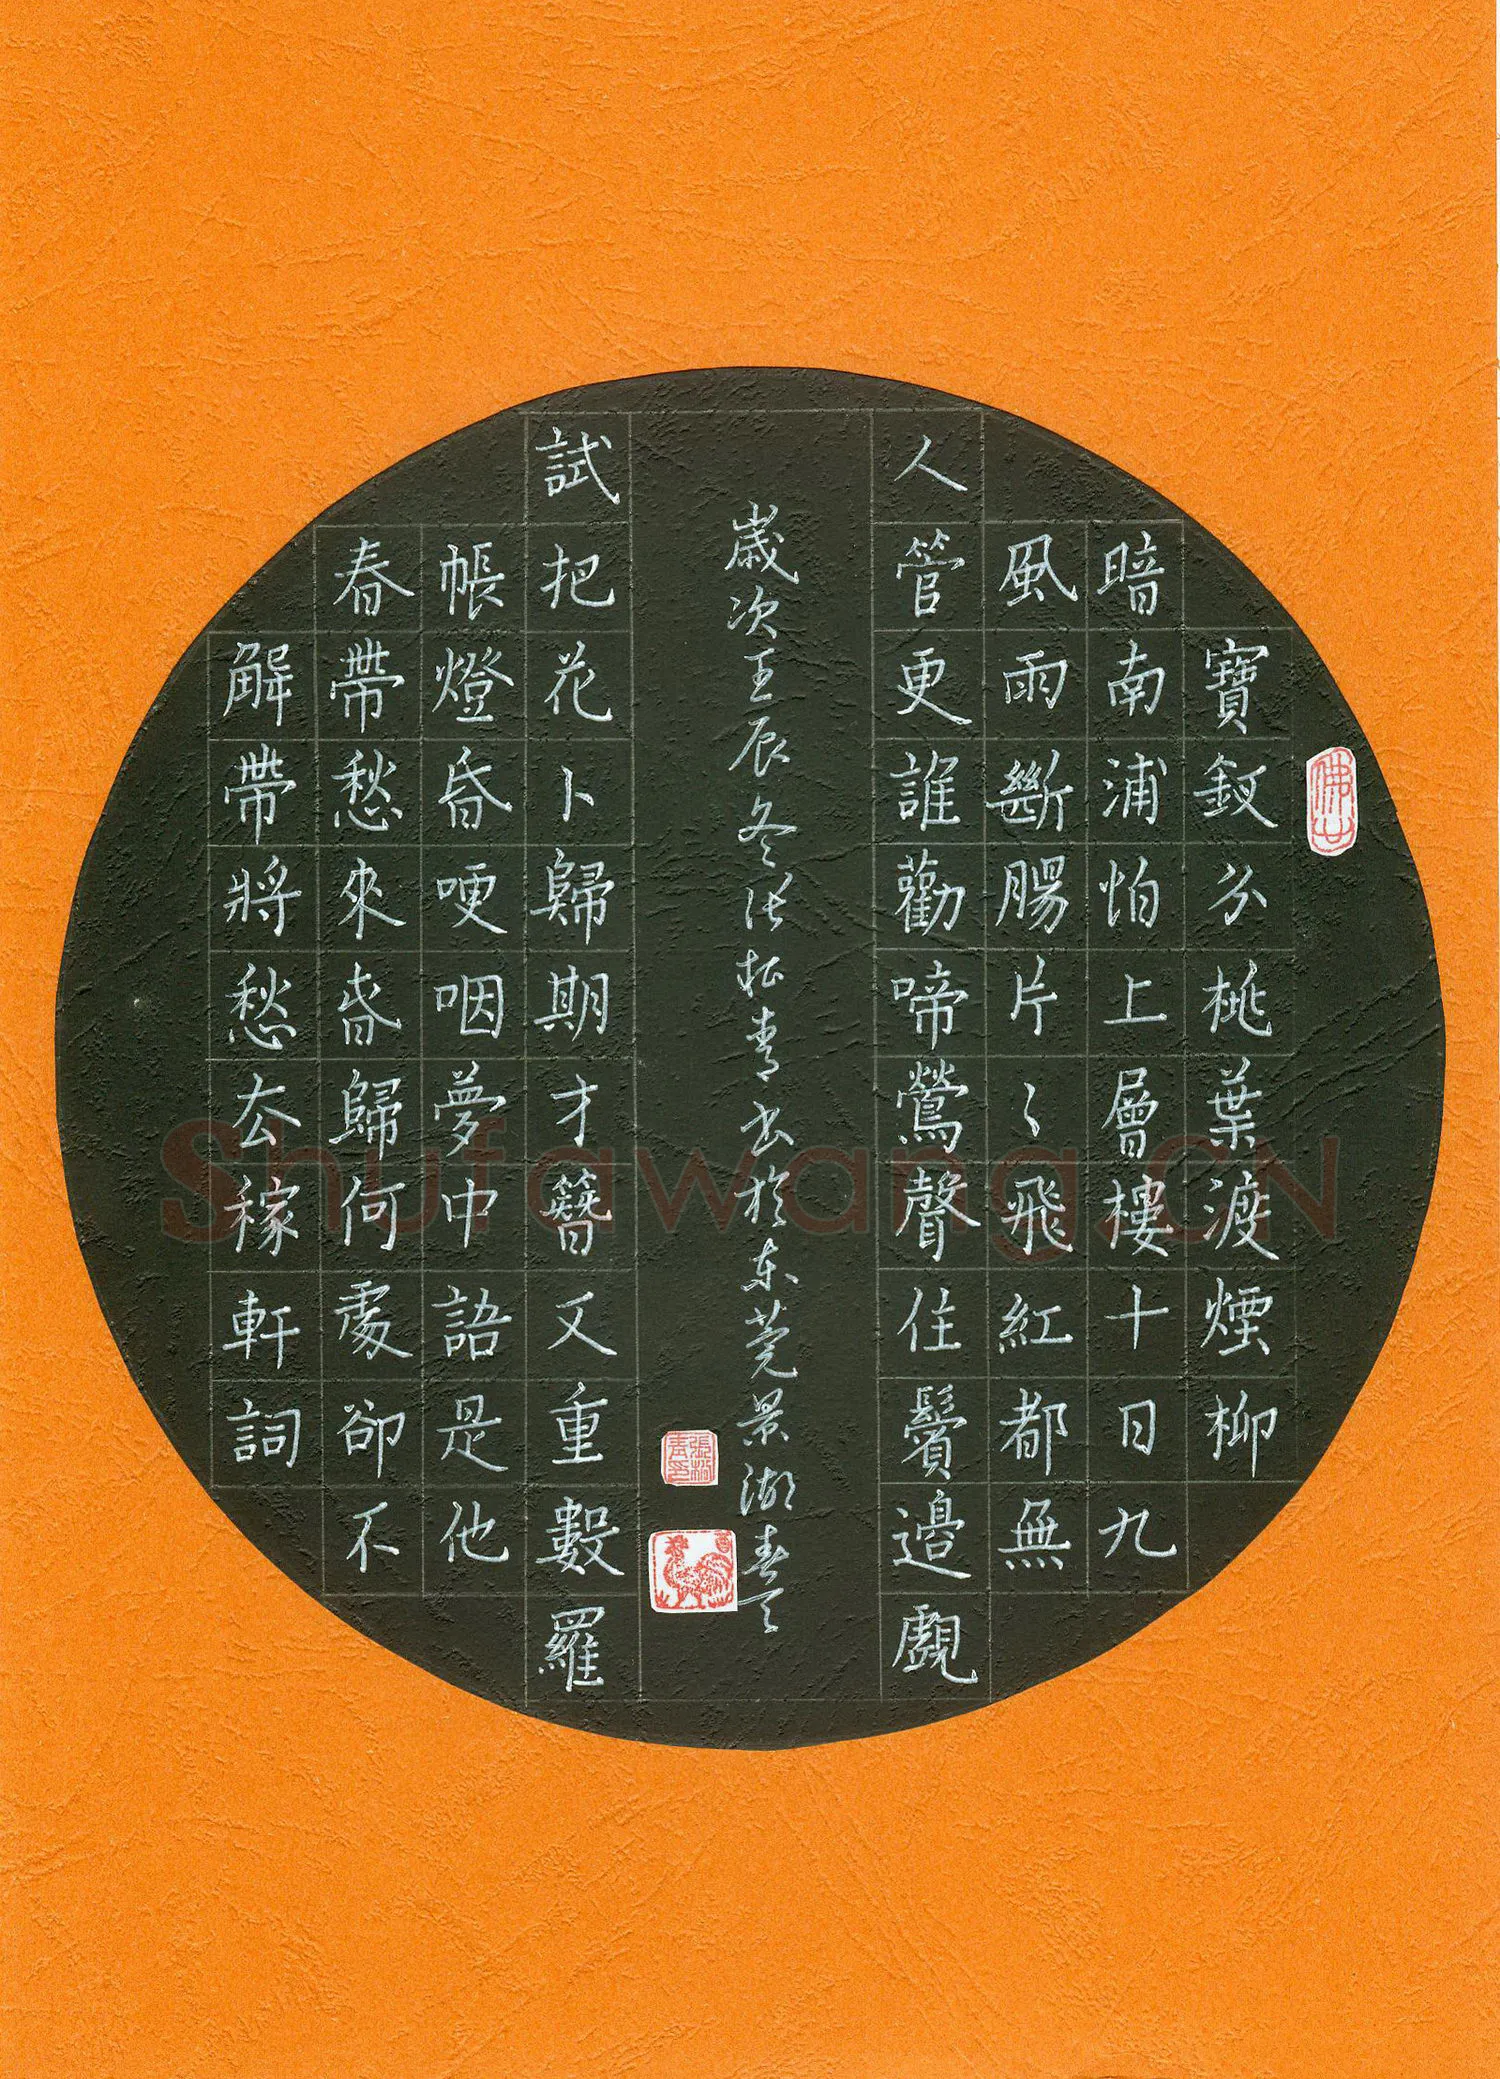 寶釵分桃葉渡煙柳
暗南浦怕上層樓十日九
風雨斷腸片〻飛紅都無
人管更誰勸啼鶯聲住鬢邊覷
試把花卜歸期才簪又重數羅
帳燈昏哽咽夢中語是他
春帶愁來春歸何處卻不
解帶將愁去稼軒詞
歲次壬辰冬張松青書於東莞景湖春天
佛山
張松青印
Shufawang.CN